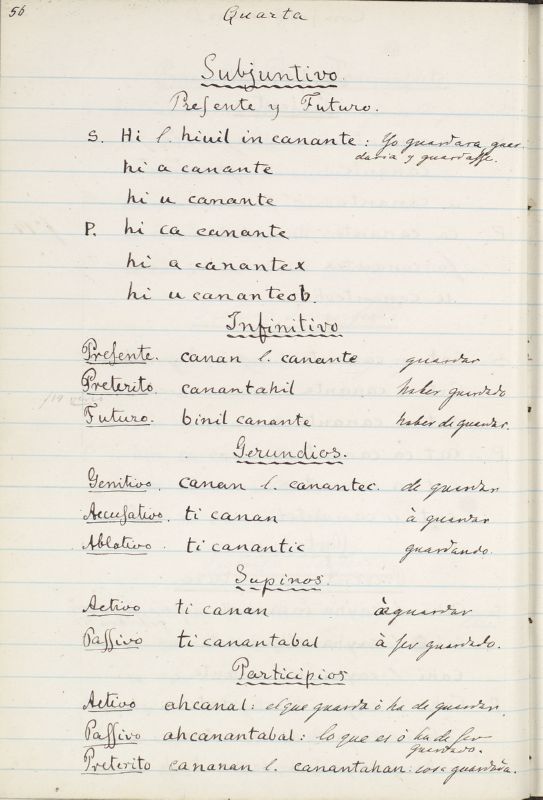 56
Quarta
Subjuntivo.
Presente y Futuro.
S. Hi l. hiuil in canante: Yo guardara, guar-
daria y guardasse.
hi a canante
hi u canante
P. hi ca canante
hi a canantex
hi u cananteob.
Infinitivo
Presente. canan l. canante guardar
Preterito. canantahil haber guardado
Futuro. binil canante haber de guardar.
Gerundios.
Genitivo. canan l. canantec. de guardar
Accusativo. ti canan à guardar
Ablativo. ti canantic guardando.
Supinos.
Activo ti canan à guardar
Passivo ti canantabal à ser guardado.
Participios
Activo ahcanal: el que guarda ó ha de guardar.
Passivo ahcanantabal: lo que es ó ha de ser
guardado.
Preterito cananan l. canantahan: cosa guardada.